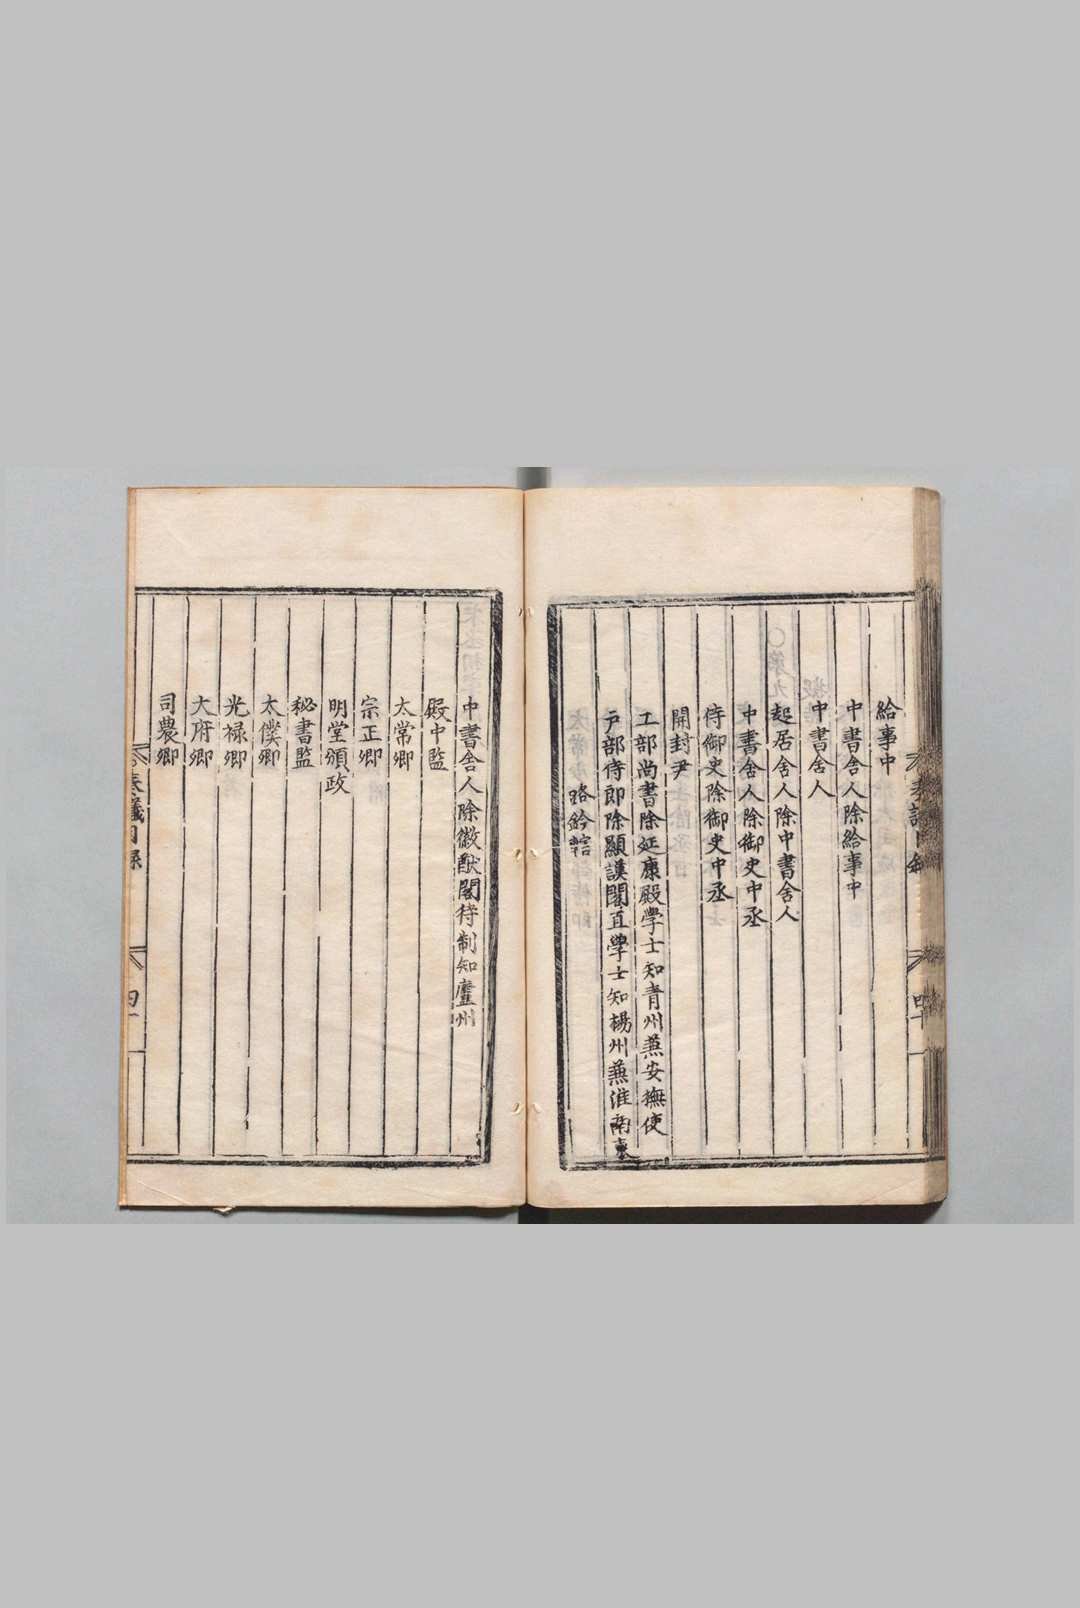 給事中
中書舍人除給事中
中書舍人
起居舍人除中書舍人
中書舍人除御史中丞
侍御史除御史中丞
開封尹
工部尚書除延康殿學士知青州兼安撫使
戶部侍郎除顯謨閣直學士知楊州兼淮南東
路鈐轄
中書舍人除徽猷閣待制知廬州
殿中監
太常卿
宗正卿
明堂頒政
秘書監
太僕卿
光祿卿
大府卿
司農卿
四